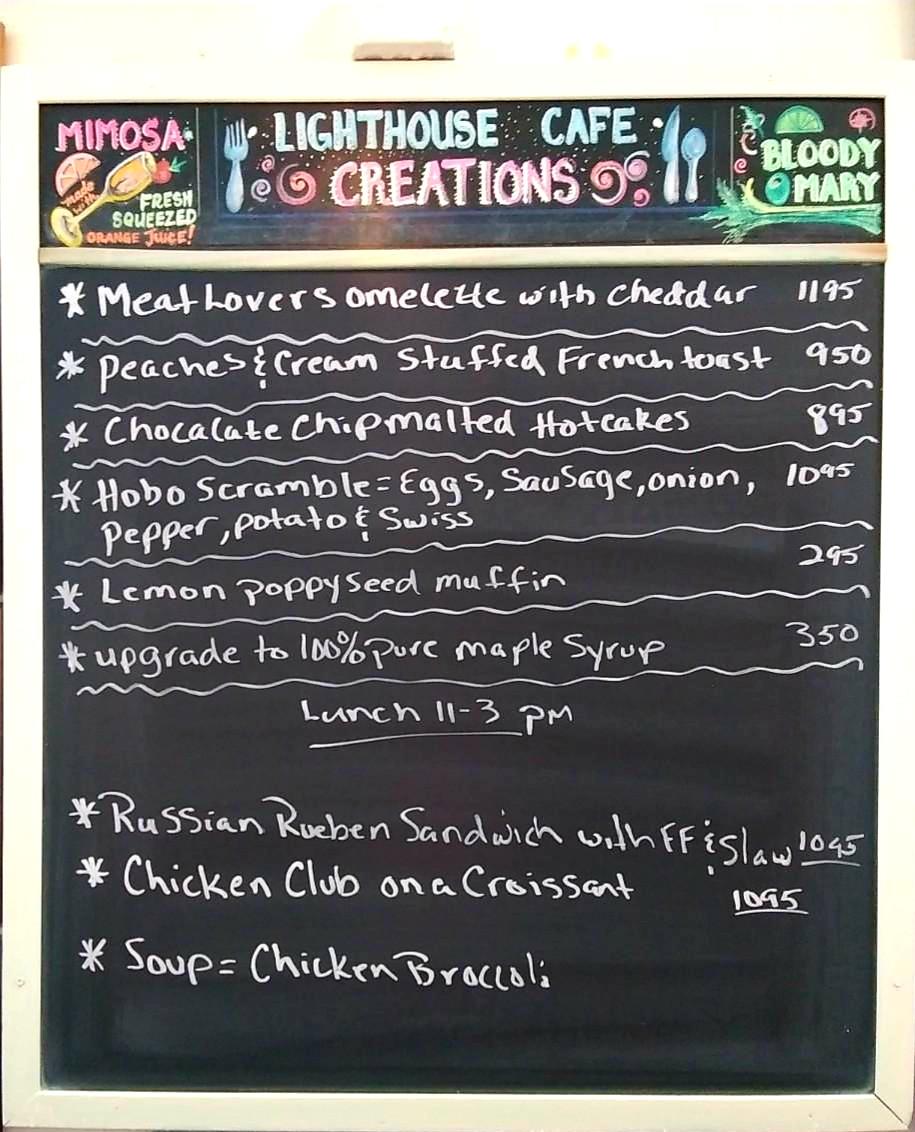 MIMOSA
made with
FRESH
SQUEEZED
ORANGE JUICE!
LIGHTHOUSE CAFE
CREATIONS
BLOODY
MARY
* Meat Lovers omelette with cheddar 1195
* Peaches & Cream Stuffed French toast 950
* Chocalate Chip malted Hotcakes 895
* Hobo Scramble = Eggs, Sausage, onion, 1095
Pepper, potato & Swiss
* Lemon poppyseed muffin 295
* upgrade to 100% pure maple Syrup 350
Lunch 11-3 pm
* Russian Rueben Sandwich with FF & Slaw 1095
* Chicken Club on a Croissant 1095
* Soup = Chicken Broccoli